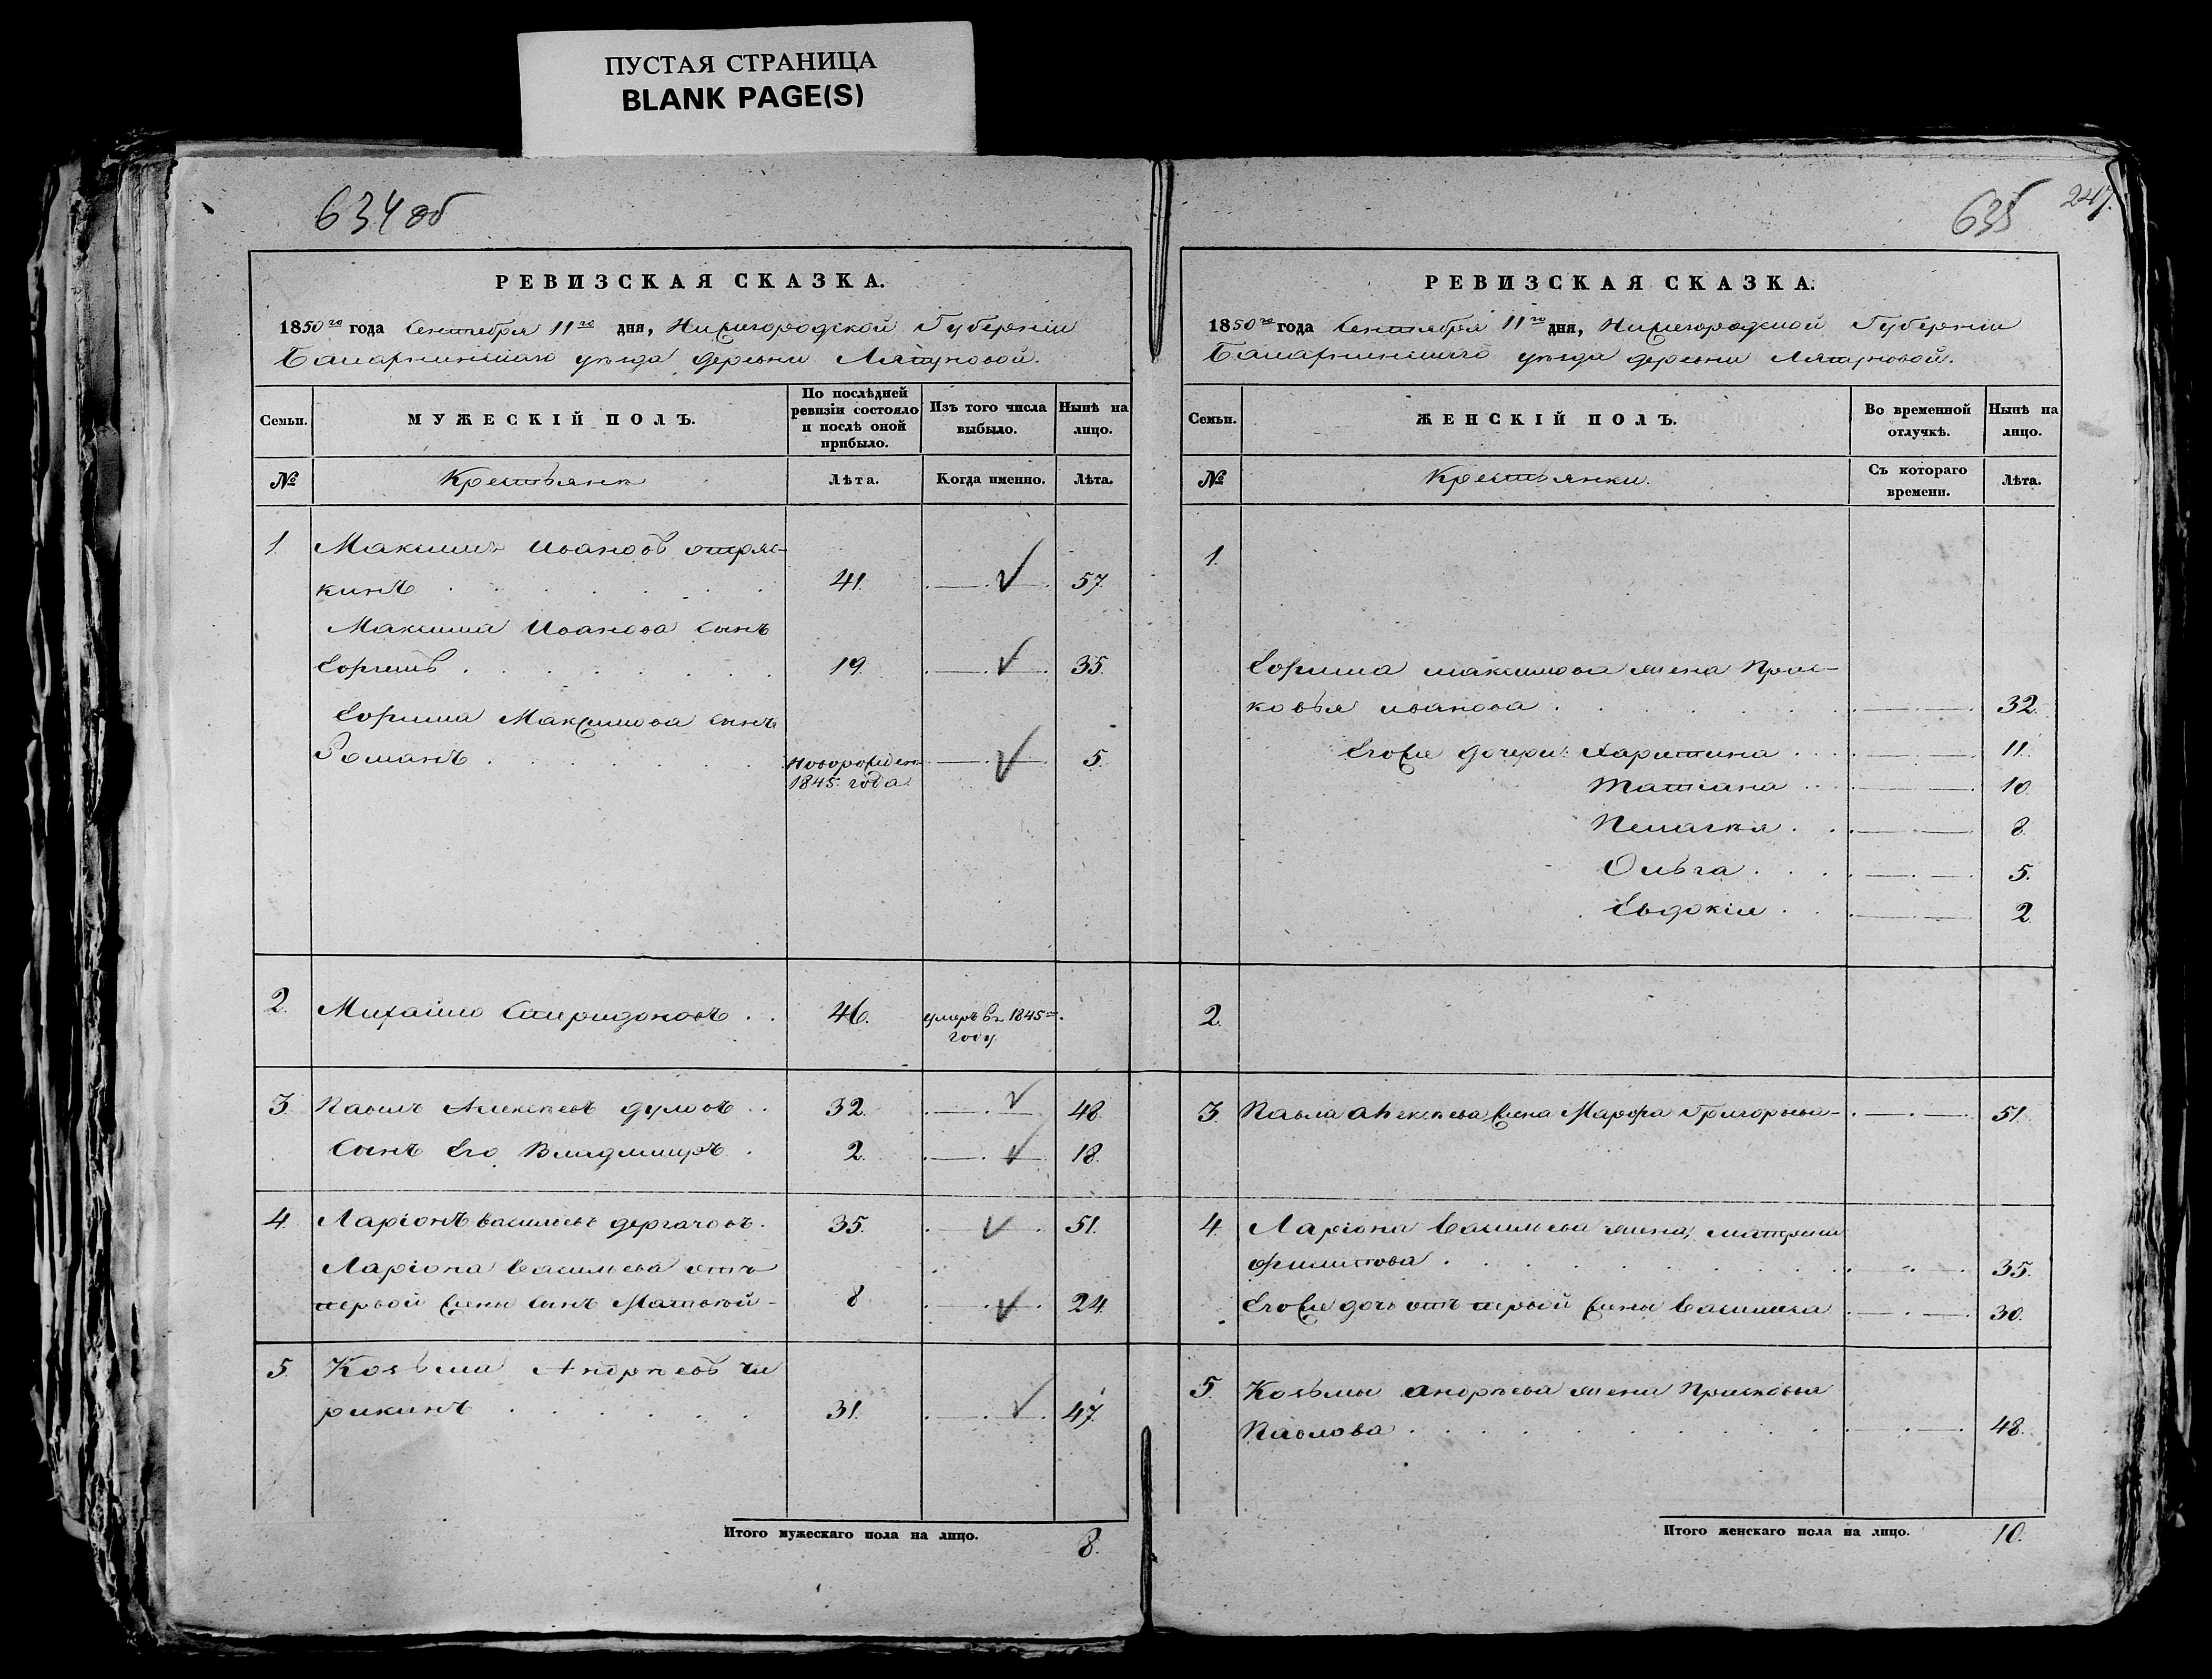 ПУСТАЯ СТРАНИЦА
BLANK PAGE(S)
634 об
РЕВИЗСКАЯ СКАЗКА.
1850го года Сентября 11го дня, Нижегородской Губерніи
уезда деревни Ляпуновой.
Семьи. МУЖЕСКІЙ ПОЛЪ. По послѣдней ревизіи состояло и послѣ оной прибыло. Изъ того числа выбыло. Нынѣ на лицо.
№ Крестьянъ Лѣта. Когда именно. Лѣта.
1. Максимъ Ивановъ
кинъ 41. 57.
Максима Иванова сынъ
Ефремъ 19. 35.
Ефрима Максимова сынъ
Романъ новорожден 5.
1845 года
2. Михайло Спиридоновъ 46. умеръ въ 1845м
году
3. Павилъ Алексѣевъ думовъ 32. 48.
Сынъ Его Владимиръ 2. 18.
4. Ларіонъ васильевъ дергачовъ 35. 51.
Ларіона Васильева отъ
первой жены сынъ Матвѣй 8 24.
5. Козьма Андрѣевъ чи
рикинъ 31. 47.
Итого мужескаго пола на лицо. 8.
635 247.
РЕВИЗСКАЯ СКАЗКА.
1850го года Сентября 11го дня, Нижегородской Губерніи
уезда деревни Ляпуновой.
Семьи. ЖЕНСКІЙ ПОЛЪ. Во временной отлучкѣ. Нынѣ на лицо.
№ Крестьянки. Съ котораго времени. Лѣта.
1.
Ефрима максимова жена Прас-
ковья иванова 32.
Егоже дочери: Харитина 11.
Татіана 10.
Пелагея 8.
Ольга 5.
Евдокія 2.
2.
3. Павла алексѣева жена Марфа Григорьева 51.
4. Ларіона Васильева жена, матрена
филипова 35.
Егоже дочь отъ первой жены Василиса 30.
5. Козьмы андрѣева жена Прасковья
Павлова 48.
Итого женскаго пола на лицо. 10.